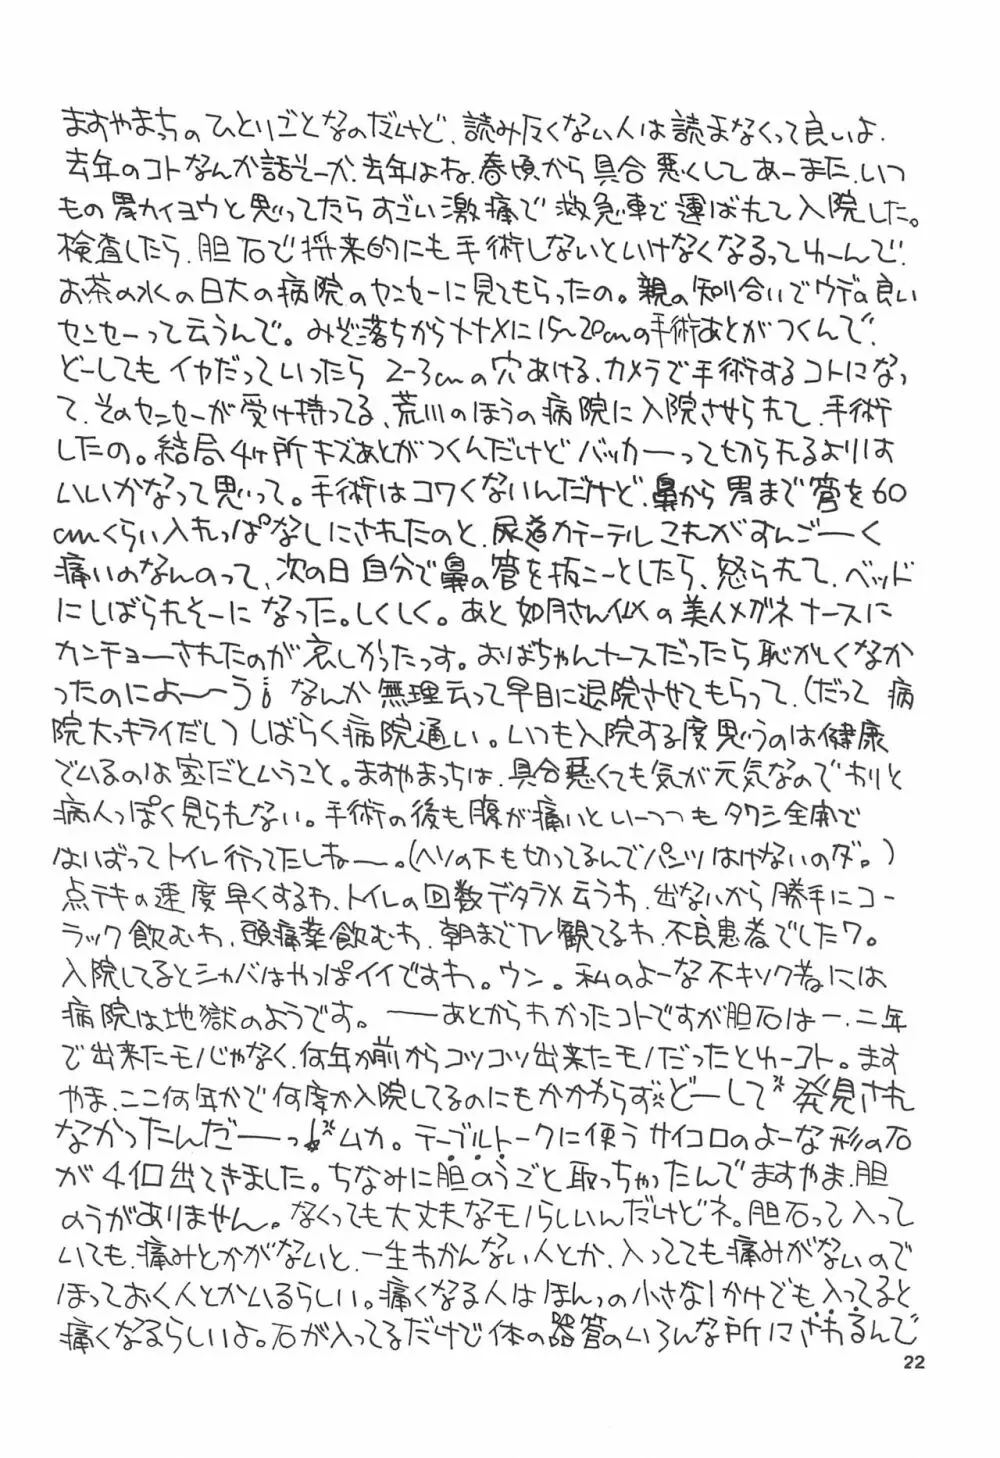 ますやまっちのひとりごとなのだけど、読みたくない人は読まなくって良いよ。
去年のコトなんか話そーか、去年はね、春頃から具合悪くしてあーまた、いつ
もの胃カイヨウと思ってたらすごい激痛で救急車で運ばれて入院した。
検査したら、胆石で将来的にも手術しないといけなくなるってゆーんで、
お茶の水の日大の病院のセンセーに見てもらったの。親の知り合いでウデの良い
センセーって云うんで。みぞ落ちからナナメに15~20cmの手術あとがつくんで、
どーしてもイヤだっていったら 2-3cmの穴あける、カメラで手術するコトになっ
て、そのセンセーが受け持ってる、荒川のほうの病院に入院させられて、手術
したの。結局4ヶ所キズあとがつくんだけどバッカーーって切られるよりは
いいかなって思って。手術はコワくないんだけど、鼻から胃まで管を60
cmくらい入れっぱなしにされたのと、尿道カテーテルこれがすんごーーく
痛いのなんのって、次の日自分で鼻の管を抜こーとしたら、怒られて、ベッド
にしばられそーになった。しくしく。あと如月さん似の美人メガネナースに
カンチョーされたのが哀しかったっす。おばちゃんナースだったら恥かしくなか
ったのによ〜〜う! なんか無理云って早目に退院させてもらって、(だって病
院大っキライだし)しばらく病院通い。いつも入院する度思うのは健康
でいるのは宝だということ。ますやまっちは、具合悪くても気が元気なのであまりと
病人っぽく見られない。手術の後も腹が痛いといーつつもタクシ全開で
はいばってトイレ行ってたしねー。(ヘソの下も切ってるんでパンツはけないのダ。)
点テキの速度早くするわ、トイレの回数デタラメ云うわ、出ないから勝手にコー
ラック飲むわ、頭痛薬飲むわ、朝までTV観てるわ、不良患者でしたワ。
入院してるとシャバはやっぱイイですわ。ウン。私のよーな不キソク者には
病院は地獄のようです。——あとからわかったコトですが胆石は一、二年
で出来たモノじゃなく、何年か前からコツコツ出来たモノだったとゆーコト。ます
やま、ここ何年かで何度か入院してるのにもかかわらず、どーして発見され
なかったんだーーっ! ムカ。テーブルトークに使うサイコロのよーな形の石
が4個出てきました。ちなみに胆のうごと取っちゃったんでますやま、胆
のうがありません。なくっても大丈夫なモノらしいんだけどネ。胆石って入って
いても、痛みとかがないと、一生わかんない人とか、入ってても痛みがないので
ほっておく人とかいるらしい。痛くなる人はほんっの小さな1かけでも入ってると
痛くなるらしいよ。石が入ってるだけで体の器管のいろんな所にさわるんで
22